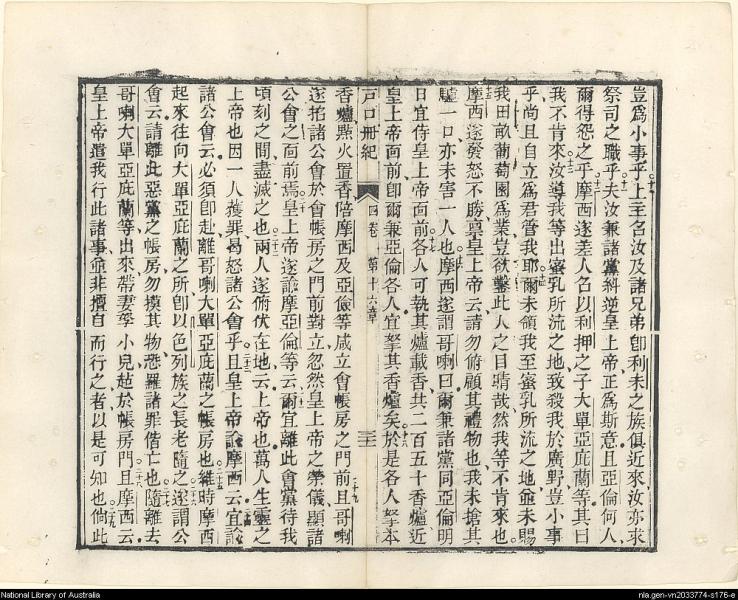 豈爲小事乎上主名汝及諸兄弟卽利未之族俱近來汝亦求
祭司之職乎夫汝兼諸黨糾逆皇上帝正爲斯意且亞倫何人
爾得怨之乎摩西遂差人名以利押之子大單亞庇蘭等其曰
我不肯來汝導我等出蜜乳所流之地致殺我於廣野豈小事
乎尚且自立爲君管我耶爾未領我至蜜乳所流之地爺未賜
我田畝葡萄園爲業豈欲鑿此人之目睛哉然我等不肯來也
摩西遂發怒不勝稟皇上帝云請勿俯顧其禮物也我未搶其
驢一口亦未害一人也摩西遂謂哥喇曰爾兼諸黨同亞倫明
日宜侍皇上帝面前各人可執其爐載香共二百五十香爐近
皇上帝面前卽爾兼亞倫各人宜拏其香爐矣於是各人拏本
戶口册紀 四卷 第十六章
香爐點火置香陪摩西及亞倫等咸立會帳房之門前且哥喇
遂招諸公會於會帳房之門前對立忽然皇上帝之榮儀顯諸
公會之面前焉皇上帝遂諭摩亞倫等云爾宜離此會黨待我
頃刻之間盡滅之也兩人遂俯伏在地云上帝也萬人生靈之
上帝也因一人獲罪曷怒諸公會乎且皇上帝諭摩西云宜諭
諸公會云必須卽赴離哥喇大單亞庇蘭之帳房也維時摩西
起來往向大單亞庇蘭之所卽以色列族之長老隨之遂謂公
會云請離此惡黨之帳房勿摸其物恐罹諸罪偕亡也隨離去
哥喇大單亞庇蘭等出來帶妻孥小兒趂於帳房門且摩西云
皇上帝遣我行此諸事並非擅自而行之者以是可知也倘此
National Library of Australia
nla.gen-vn2033774-s176-e